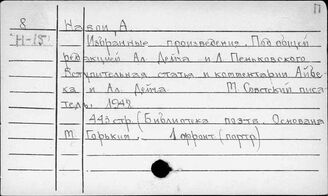 П
8 Навои, А.
Н-15 Избранные произведения. Под общей
редакцией Ал. Дейча и Л. Пеньковского
Вступительная статья и комментарии Айбе-
ка и Ал. Дейча М. Советский писа-
тель 1948
443 стр. (Библиотека поэта. Основана
М. Горьким. 1 фронт. (портр)